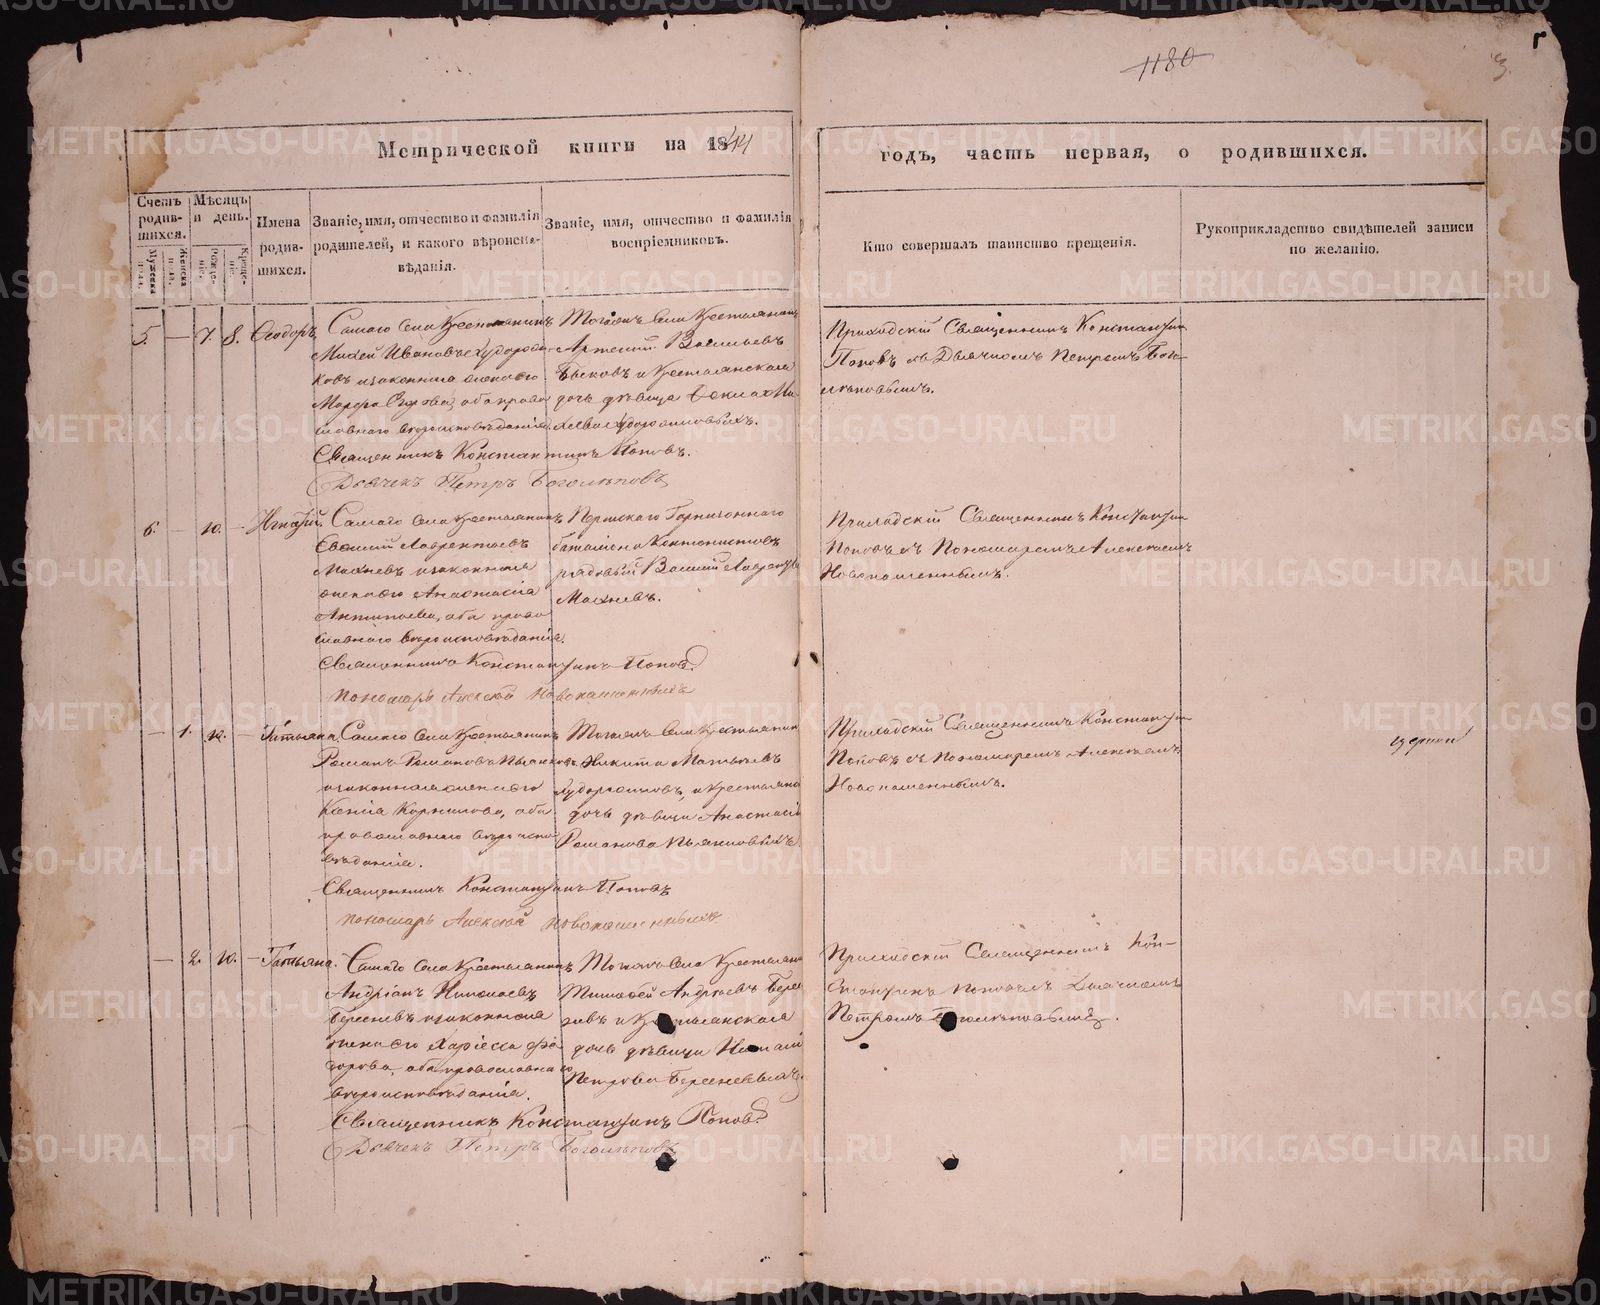 1180
3
Метрической книги на 1844
годъ, часть первая, о родившихся.
Счетъ родив-шихся.
Мужеска пола.
Женска пола.
Мѣсяцъ и день.
Рожде-ніе.
Креще-ніе.
Имена родив-шихся.
Званіе, имя, отчество и фамилія
родителей, и какого вѣроиспо-
вѣданія.
Званіе, имя, отчество и фамилія
воспріемниковъ.
Кто совершалъ таинство крещенія.
Рукоприкладство свидѣтелей записи
по желанію.
5. — 7. 8. Ѳеодоръ
Самаго села крестьянинъ
Михей Ивановъ
ковъ и законная жена его
Марѳа оба право
славнаго вѣроисповѣданія.
Священникъ Константинъ Поповъ.
Дьячекъ Петръ Боголѣповъ
Тогожъ села крестьянинъ
Артемій Васильевъ
Быковъ и крестьянская
дочь дѣвица
Приходскій Священникъ Константинъ
Поповъ съ Дьячкомъ Петромъ Бого-
лѣповымъ.
6. — 10. — Игнатій.
Самаго села крестьянинъ
Евсевій Лаврентьевъ
Махневъ и законная
жена его Анастасія
Антипьева, оба право
славнаго вѣроисповѣданія.
Священникъ Константинъ Поповъ
Пономарь Алексѣй Новопашенныхъ
Пермскаго Гарнизоннаго
баталіона Кантонистовъ
рядовый Василій Лаврентьевъ
Махневъ.
Приходскій Священникъ Константинъ
Поповъ съ Пономаремъ Алексѣемъ
Новопашеннымъ.
— 1. 10. — Татьяна.
Самаго села крестьянинъ
Романъ Романовъ Пьянковъ
и законная жена его
Ксенія Корнилова, оба
православнаго вѣроиспо
вѣданія.
Священникъ Константинъ Поповъ
Пономарь Алексѣй Новопашенныхъ
Тогожъ села крестьянинъ
Никита Матвѣевъ
и крестьянская
дочь дѣвица Анастасія
Романова Пьянковыхъ
Приходскій Священникъ Константинъ
Поповъ съ Пономаремъ Алексѣемъ
Новопашеннымъ.
— 2. 10. — Татьяна.
Самаго села крестьянинъ
Андріанъ Николаевъ
Береневъ и законная
жена его Харіесса Ѳео
дорова, оба православнаго
вѣроисповѣданія.
Священникъ Константинъ Поповъ
Дьячекъ Петръ Боголѣповъ
Тогожъ села крестьянинъ
Тимоѳей Андреевъ
и крестьянская
дочь дѣвица
Петрова Береневыхъ.
Приходскій Священникъ Кон-
стантинъ Поповъ съ Дьячкомъ
Петромъ Боголѣповымъ.
METRIKI.GASO-URAL.RU